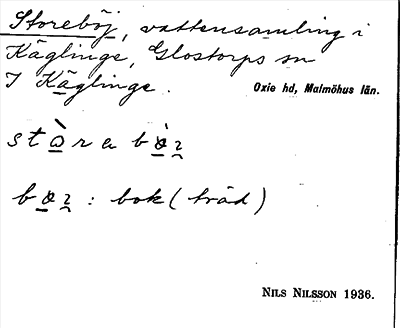 Storeböj, vattensamling i
Käglinge, Glostorps sn
I Käglinge.
Oxie hd, Malmöhus län.
stòra bø̀ɿ
bøɿ : bok (träd)
NILS NILSSON 1936.